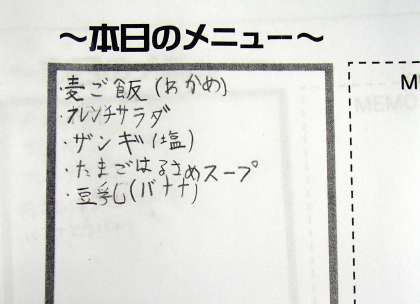 ～本日のメニュー～
・麦ご飯(わかめ)
・フレンチサラダ
・ザンギ(塩)
・たまごはるさめスープ
・豆乳(バナナ)
M